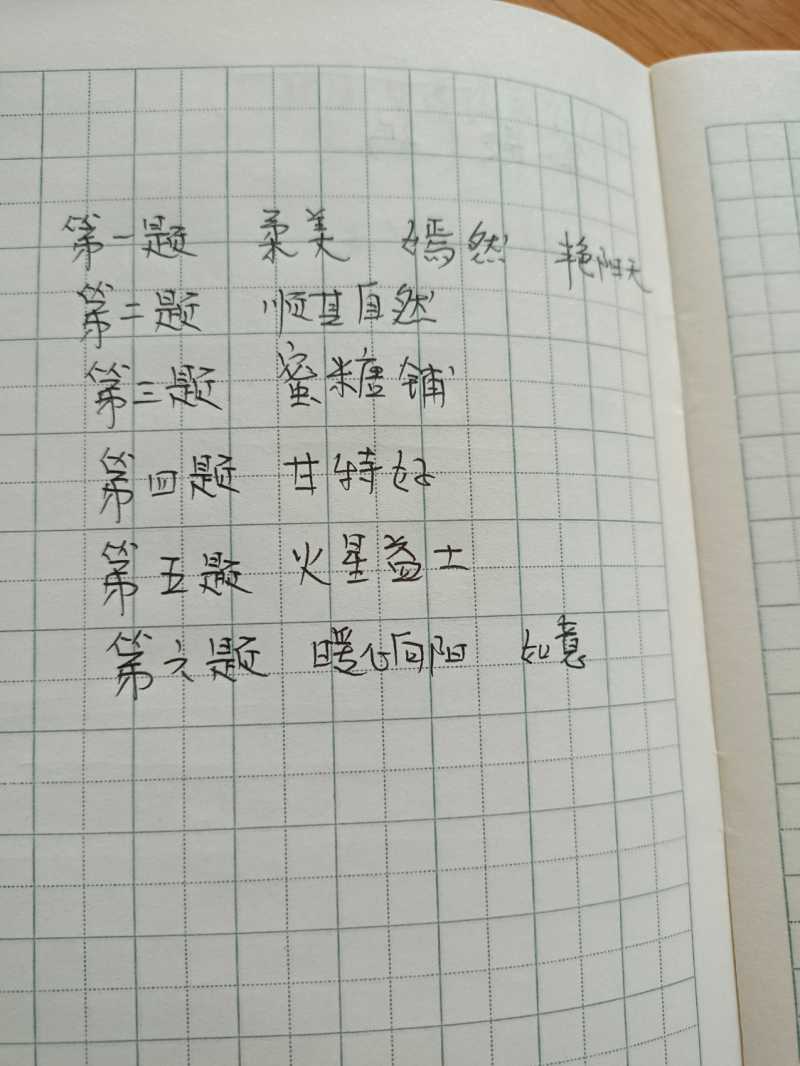 第一题 柔美 嫣然 艳阳天
第二题 顺其自然
第三题 蜜糖铺
第四题 甘特好
第五题 火星益士
第六题 暖心向阳 如意